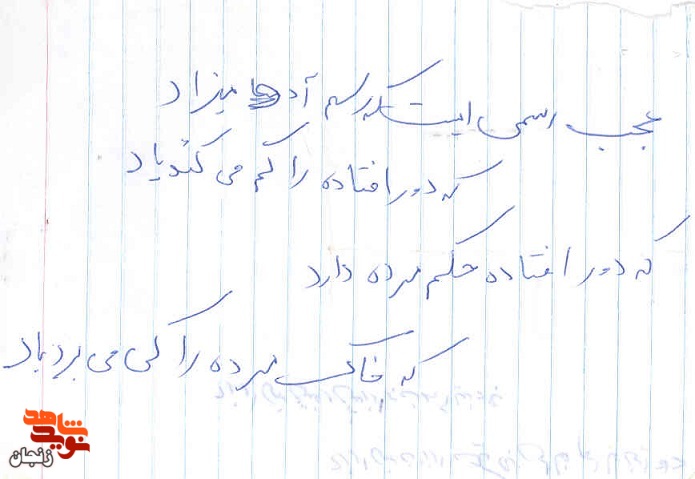 عجب رسمی است که رسم آدمیزاد
که دور افتاده را کم می کند یاد
که دور افتاده حکم مرده دارد
که خاک مرده را کی می برد باد
نوید شاهد
زنجان